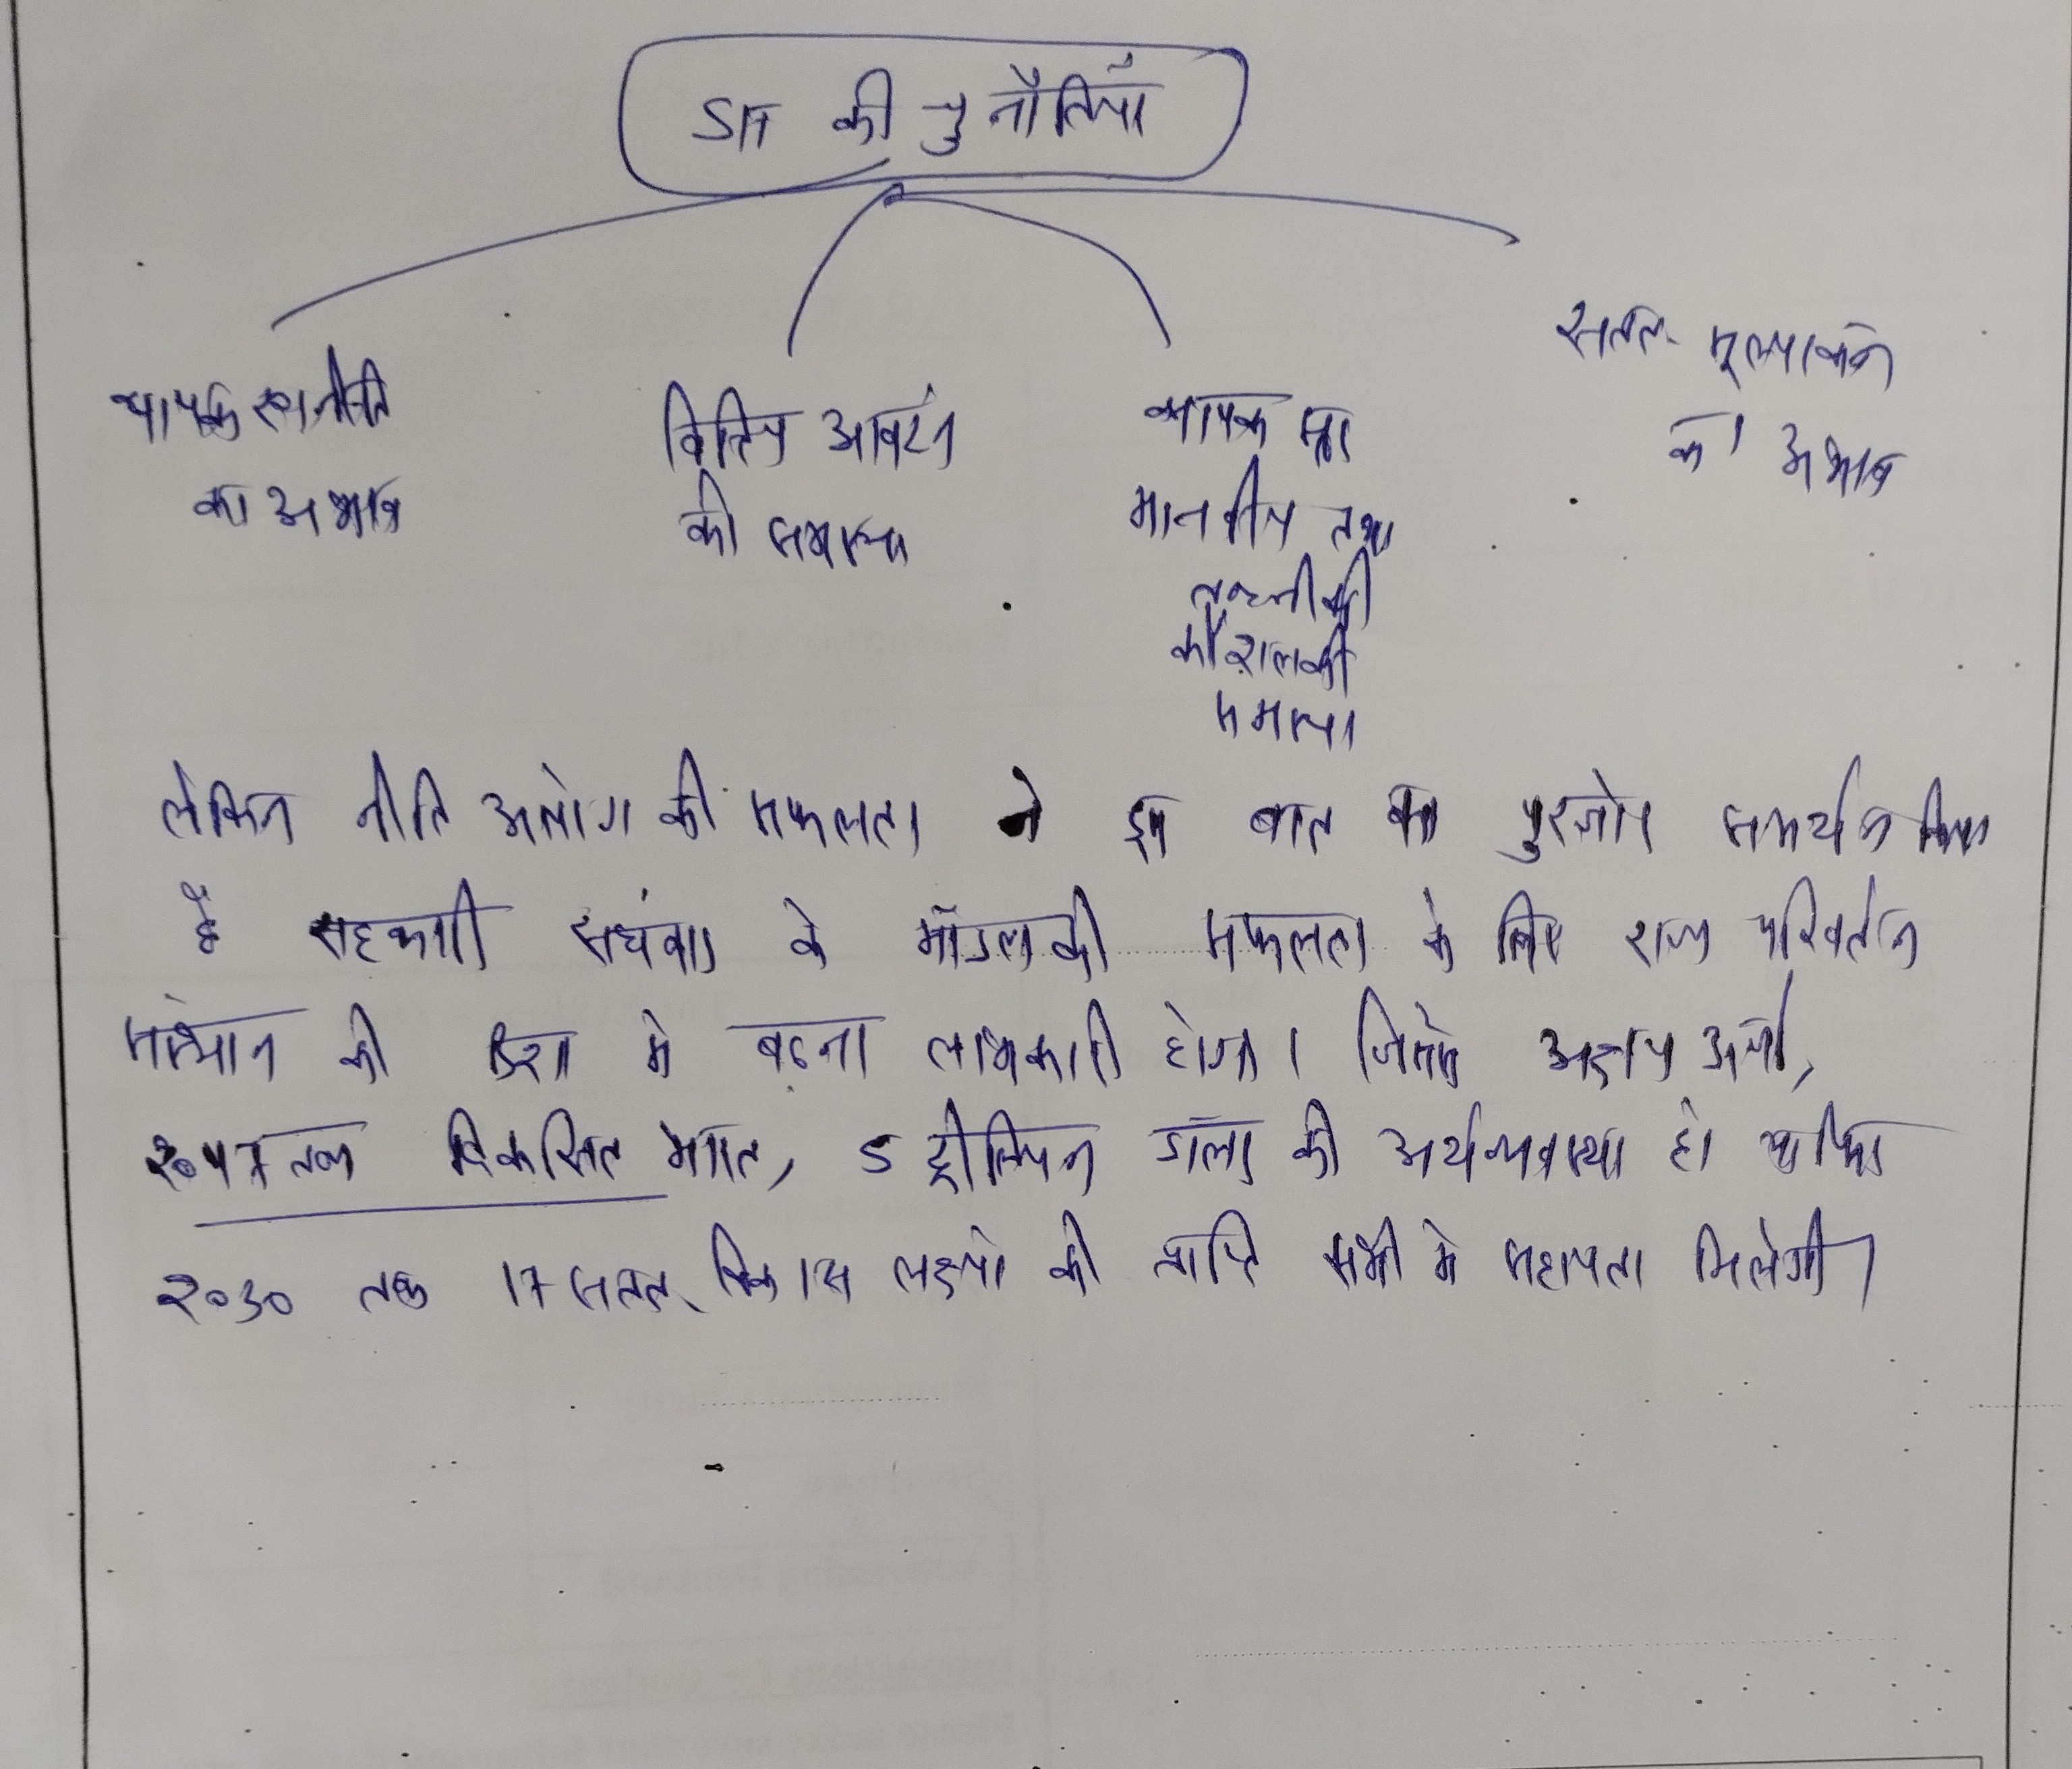 SIT की चुनौतियाँ
व्यापक रणनीति
का अभाव
वित्तिय आवंटन
की समस्या
व्यापक
मानवीय तथा
तकनीकी
कौशल की
समस्या
सतत् मूल्यांकन
का अभाव
लेकिन नीति आयोग की सफलता ने इस बात का पुरजोर समर्थन किया
है सहकारी संघवाद के मॉडल की सफलता के लिए राज्य परिवर्तन
संस्थान की दिशा मे बढ़ना लाभकारी होगा। जिससे अक्षय ऊर्जा,
2047 तक विकसित भारत, 5 ट्रीलियन डॉलर की अर्थव्यवस्था हो या फिर
2030 तक 17 सतत् विकास लक्ष्यो की प्राप्ति सभी मे सहायता मिलेगी।